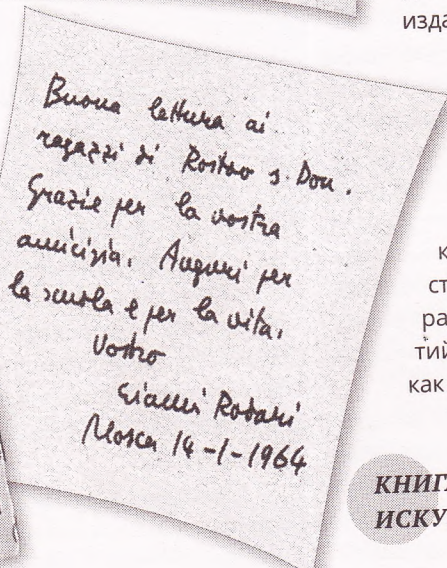 изда
Buona lettura ai
ragazzi di Rostov s. Don.
Grazie per la vostra
amicizia. Auguri per
la scuola e per la vita.
Vostro
Gianni Rodari
Mosca 14-1-1964
к
ст
ра
тий
как
КНИГ
ИСКУ